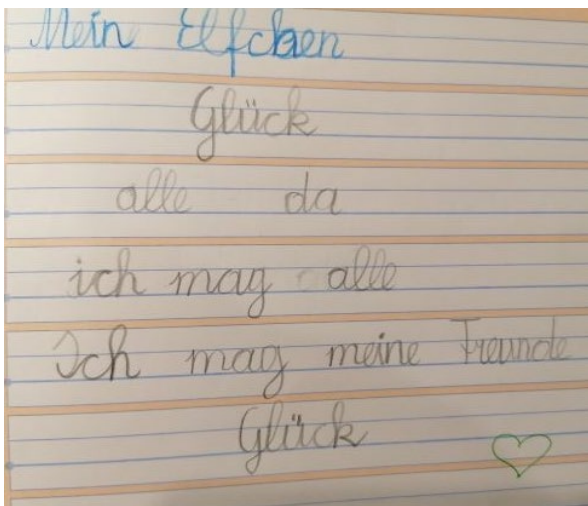 Mein Elfchen
Glück
alle da
ich mag alle
Ich mag meine Freunde
Glück